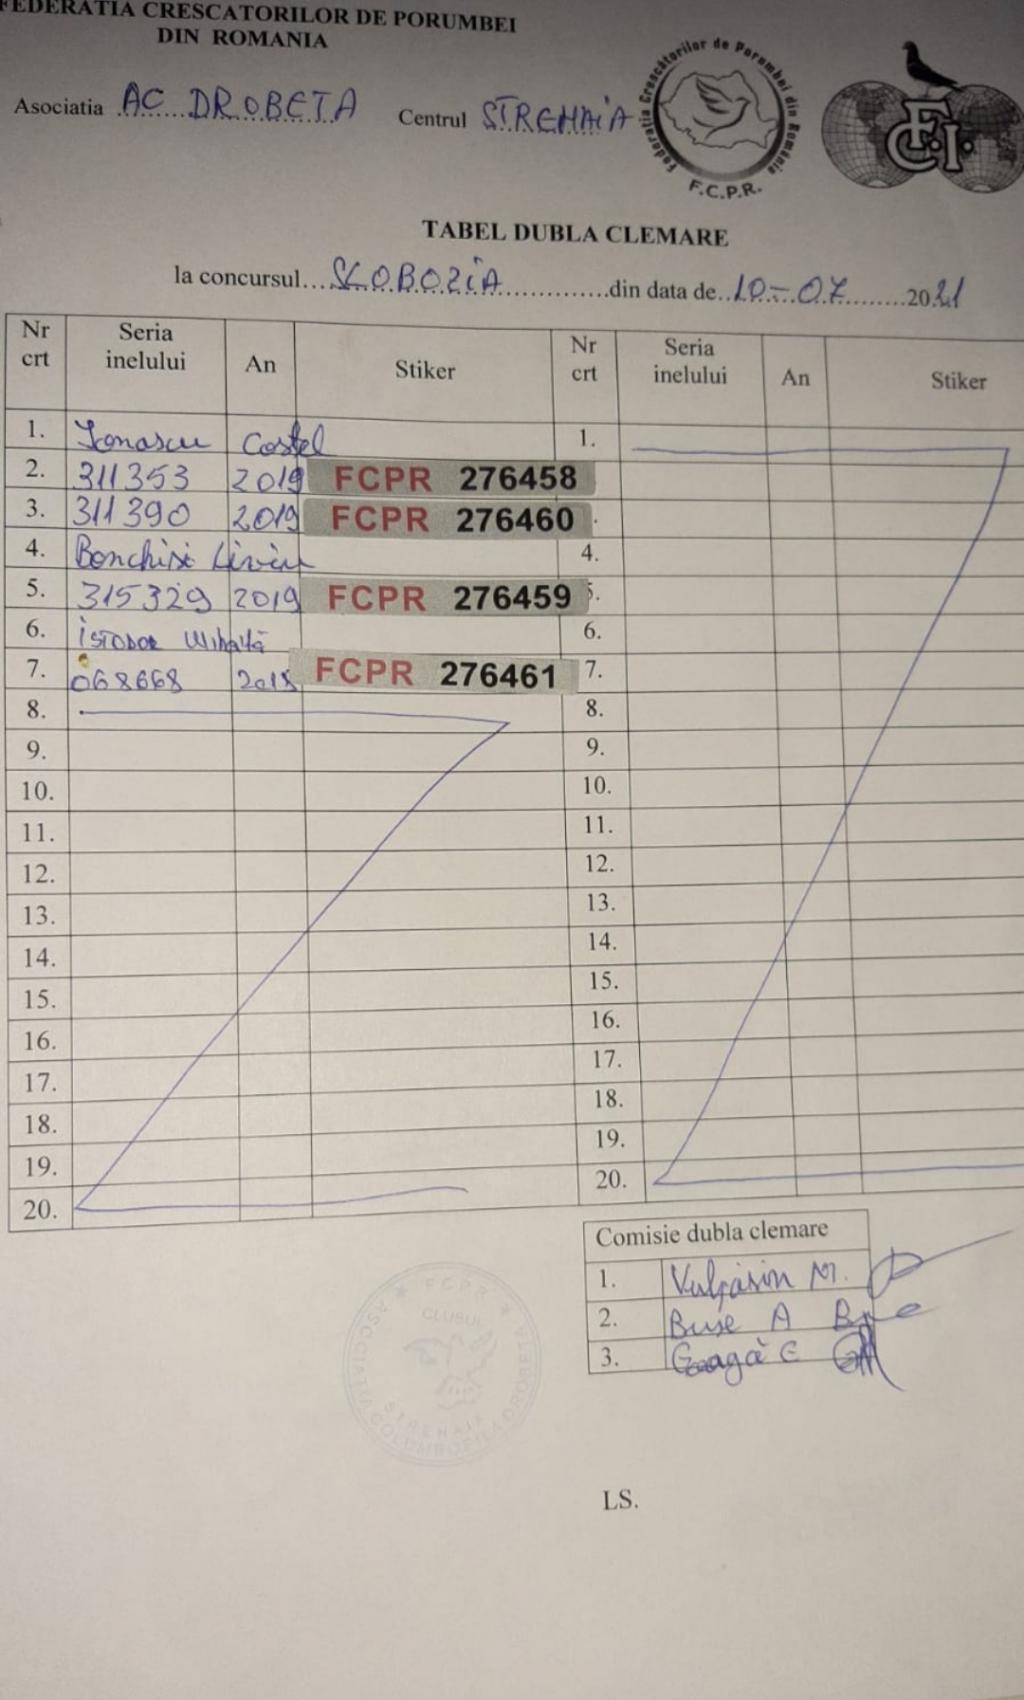 FEDERATIA CRESCATORILOR DE PORUMBEI
DIN ROMANIA
Asociatia AC DROBETA Centrul STREHAIA
Federatia Crescătorilor de Porumbei din România
F.C.P.R.
F.C.I.
TABEL DUBLA CLEMARE
la concursul...SLOBOZIA...din data de..10-07...2021
Nr crt Seria inelului An Stiker Nr crt Seria inelului An Stiker
1. Ionascu Costel 1.
2. 311353 2019 FCPR 276458
3. 311390 2019 FCPR 276460
4. Liviu 4.
5. 315329 2019 FCPR 276459 5.
6. istodor Mihaită 6.
7. 068668 2018 FCPR 276461 7.
8. 8.
9. 9.
10. 10.
11. 11.
12. 12.
13. 13.
14. 14.
15. 15.
16. 16.
17. 17.
18. 18.
19. 19.
20. 20.
Comisie dubla clemare
1. M.
2. Buse A
3. Goagă C
FCPR
CLUBUL
STREHAIA
ASOCIATIA COLUMBOFILA DROBETA
LS.